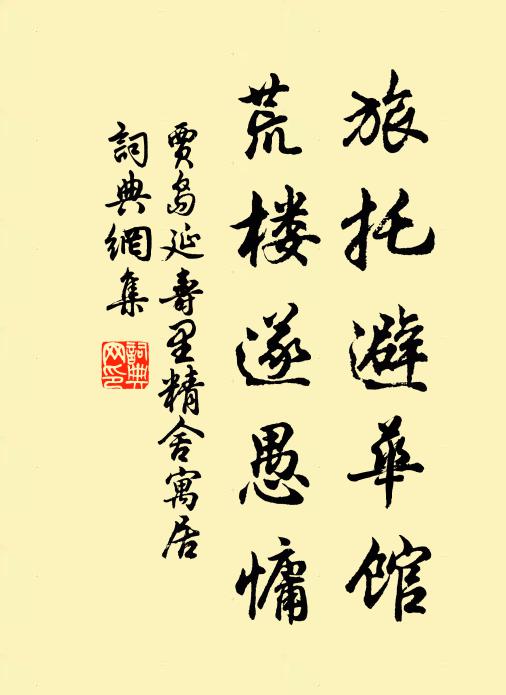 旅托避华馆
荒楼遂愚慵
贾岛延寿里精舍寓居
词典网集
词典网印